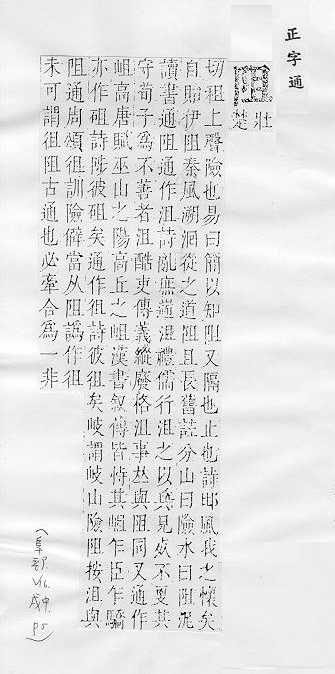 正字通
阻
壯楚
切租上聲險也易曰簡以知阻又隔也止也詩邶風我之懷矣
自貽伊阻秦風溯洄從之道阻且長舊詁分山曰險水曰阻泥
讀書通阻通作沮詩亂庶遄沮禮儒行沮之以兵見死不更其
守荀子爲不善者沮酷吏傳義縱廢格沮事𠀤與阻同又通作
岨高唐賦巫山之陽高丘之岨漢書敘傳皆恃其岨乍臣乍驕
亦作砠詩陟彼砠矣通作徂詩彼徂矣岐謂岐山險阻按沮與
阻通周頌徂訓險僻當从阻譌作徂
未可謂徂阻古通也必牽合爲一非